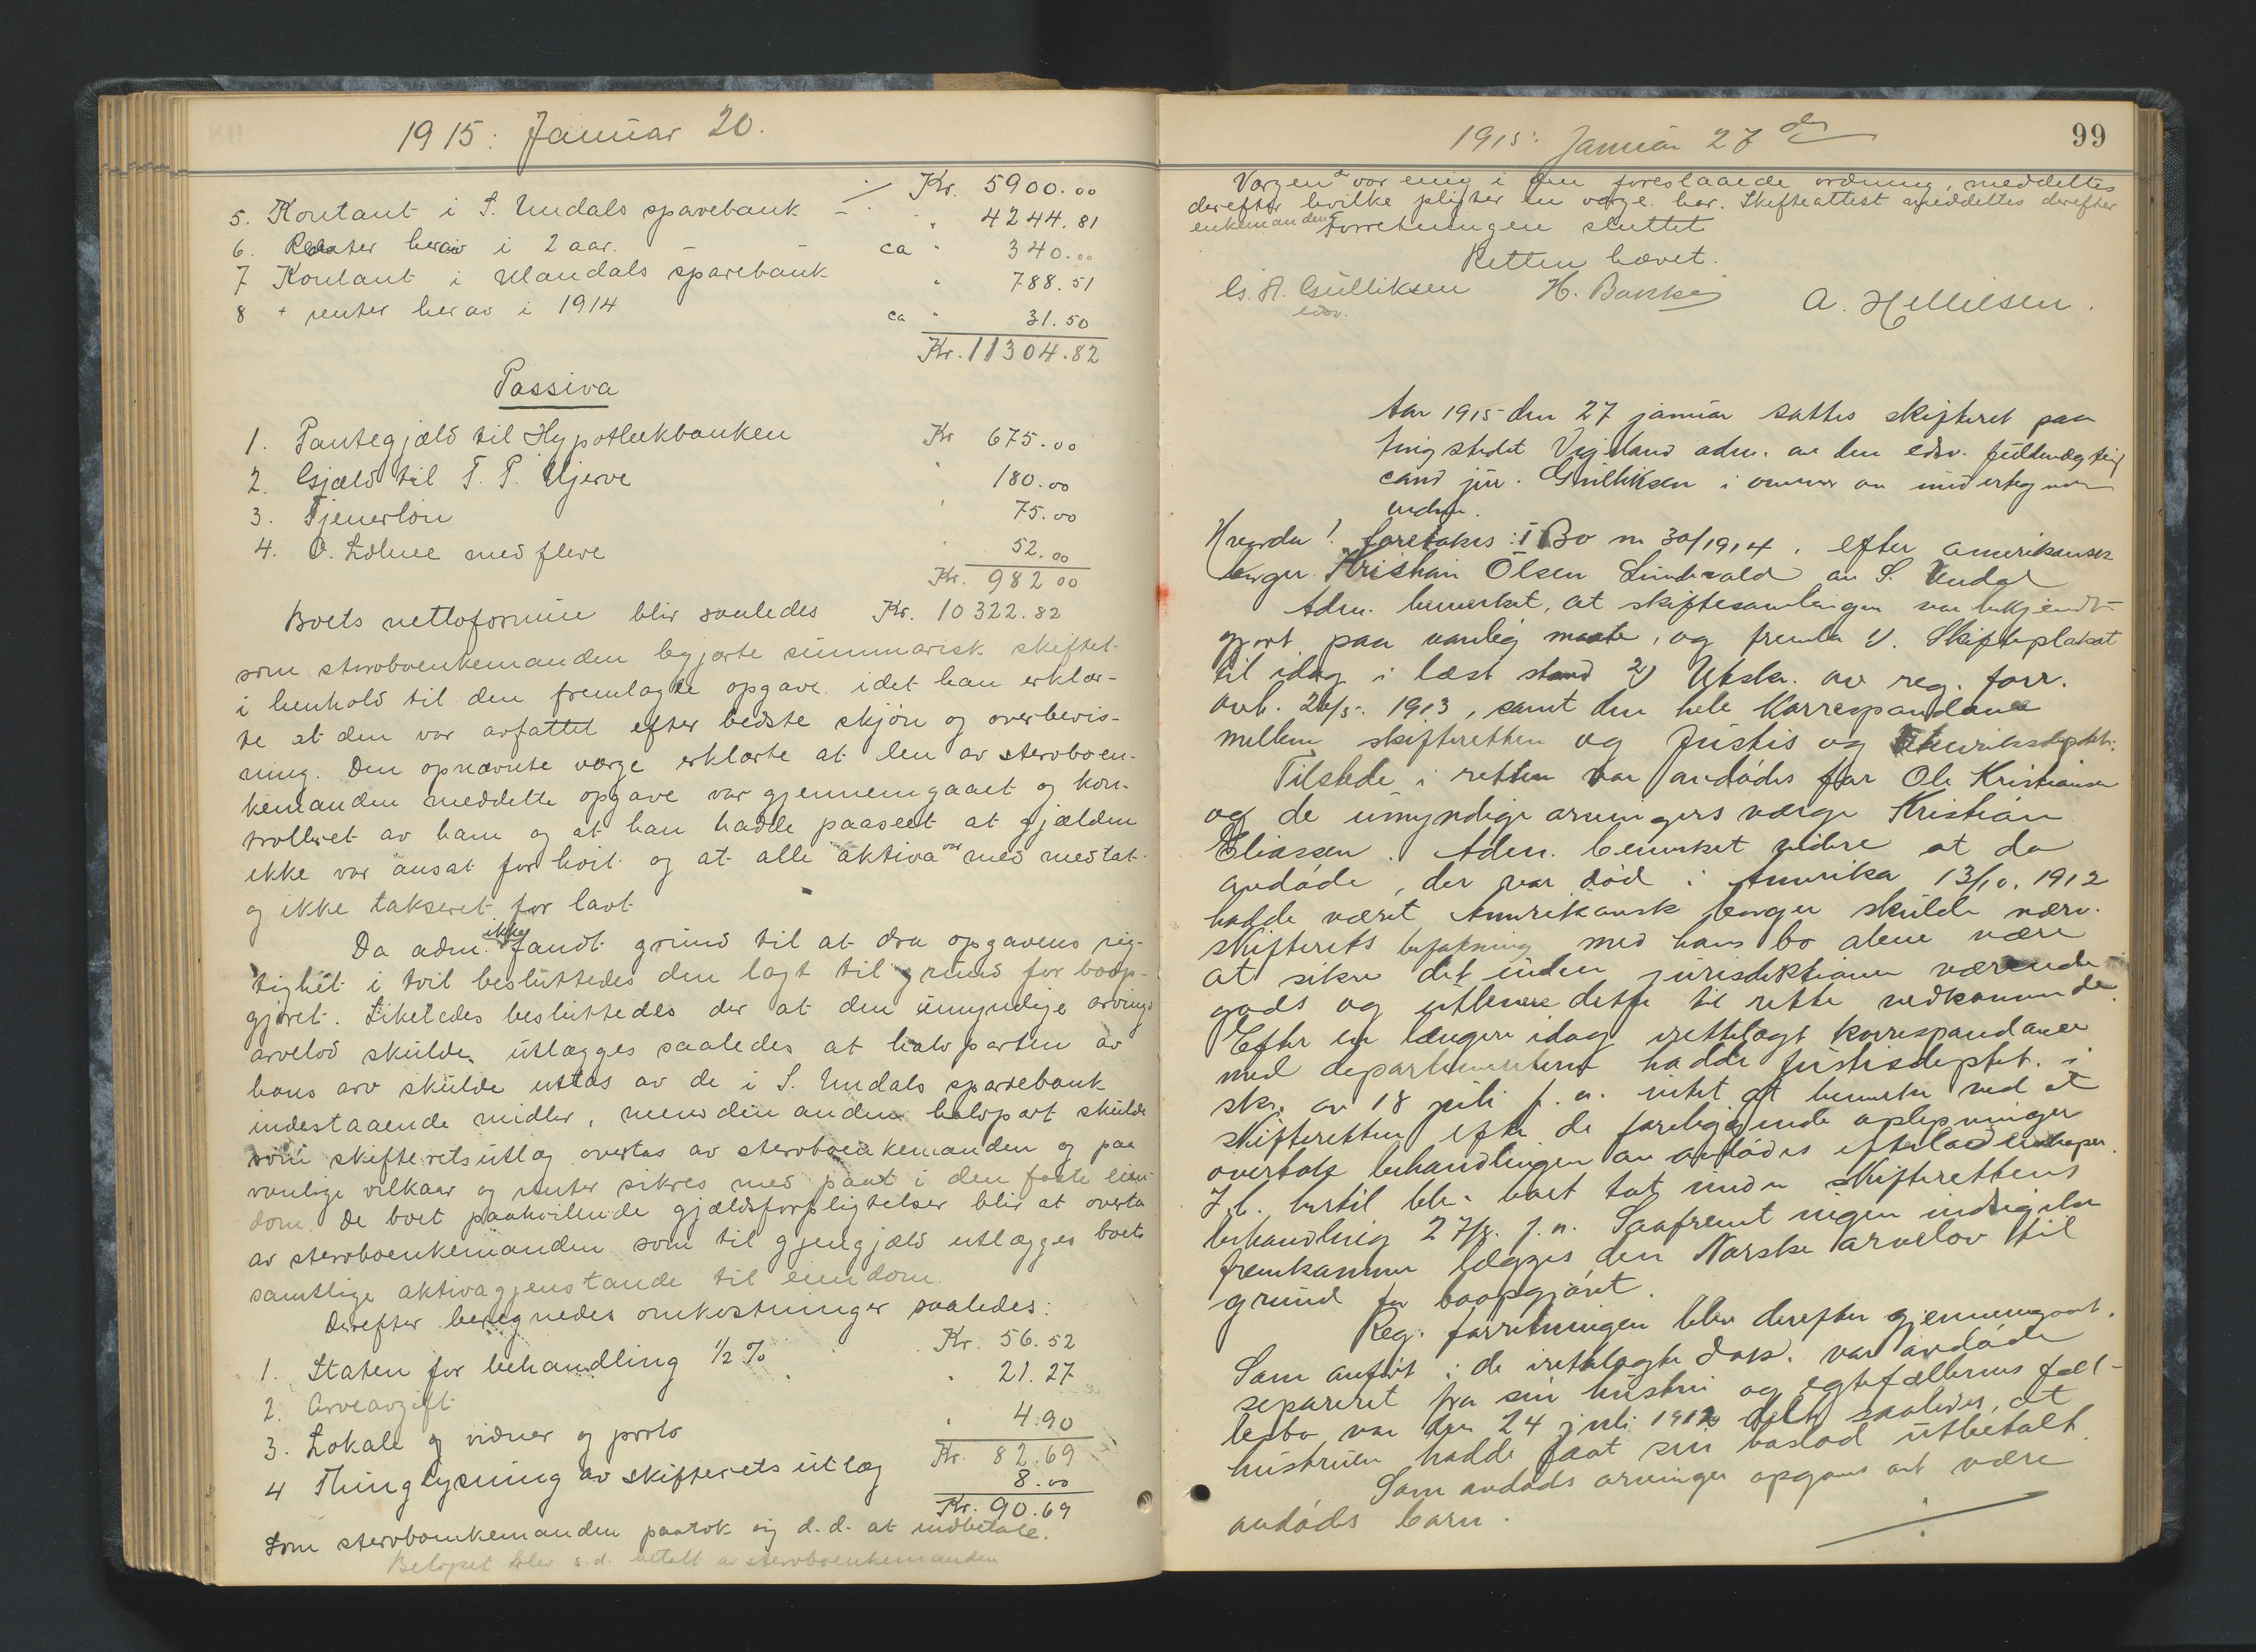 1915: Januar 20.
Kr. 5900.00
5. Kontant i S. Undals sparebank - " 4244.81
6. Renter herav i 2 aar. - - ca " 340.00
7 Kontant i Mandals sparebank " 788.51
8 + renter herav i 1914 ca " 31.50
Kr. 11304.82
Passiva
1. Pantegjæld til Hypothekbanken Kr 675.00
2. Gjæld til T. P. " 180.00
3. Tjenerløn " 75.00
4. O. med flere " 52.00
Kr. 982 00
Boets nettoformue blir saaledes Kr. 10322.82
som stervboenkemanden begjærte summarisk skiftet
i henhold til den fremlagte opgave idet han erklær-
te at den var avfattet efter bedste skjøn og overbevis-
ning. Den opnævnte værge erklærte at den av stervboen-
kemanden meddelte opgave var gjennemgaaet og kon-
trolleret av ham og at han hadde paaseet at gjælden
ikke var ansat for høit og at alle aktiva var med medtat
og ikke takseret for lavt
Da adm. ikke fandt grund til at dra opgavens rig-
tighet i tvil besluttedes den lagt til grund for boop-
gjøret. Likeledes besluttedes der at den umyndige arvings
arvelod skulde utlægges saaledes at halvparten av
hans arv skulde uttas av de i S. Undals sparebank
indestaaende midler, mens den anden halvpart skulde
som skifteretsutlæg overtas av stervboenkemanden og paa
vanlige vilkaar og renter sikres med pant i den faste eien-
dom. De boet paahvilende gjældsforpligtelser blir at overta
av stervboenkemanden som til gjengjæld utlægges boets
samtlige aktivagjenstande til eiendom.
Derefter beregnedes omkostninger saaledes:
1. Staten for behandling 1/2 % Kr. 56.52
2. Arveavgift " 21.27
3. Lokale og vidner og porto " 4.90
Kr. 82.69
4 Thinglysning av skifterets utlæg 8.00
Kr. 90.69
Som stervboenkemanden paatok sig d.d. at indbetale.
Beløpet blev s.d. betalt av stervboenkemanden
1915: Januar 27de
99
Værgen der var enig i den foreslaaede ordning, meddeltes
derefter hvilke pligter en værge har. Skifteattest meddeltes derefter
enkemanden Forretningen sluttet
Retten hævet.
G. A. Gulliksen H. Bakke A.
edsv.
Aar 1915 den 27 januar sattes skifteret paa
tingstedet Vigeland adm. av den edsv. fuldmægtig
cand jur. Gulliksen i overvær av undertegnede
vidner.
Hvorda! foretokes: I Bo nr 30/1914. efter amerikansk
borger Kristian Olsen Lindevald av S. Undal
Adm. bemerket, at skiftesamlingen var bekjendt-
gjort paa vanlig maate, og fremla 1). Skifteplakat
til idag i læst stand 2) Utskr. av reg. forr.
avh. 26/5. 1913, samt den hele korrespondance
mellem skifteretten og Justis og Utenriksdeptet:
Tilstede i retten var avdødes far Ole Kristiansen
og de umyndige arvingers værge Kristian
Eliassen. Adm. bemerket videre at da
avdøde, der var død i Amerika 13/10. 1912
hadde været Amerikansk borger skulde nærv.
skifterets befatning med hans bo alene være
at sikre det inden jurisdiktionen værende
gods og utlevere dette til rette vedkommende.
Efter en længere idag irettelagt korrespondance
med departementerne hadde justisdeptet. i
skr. av 18 juli f. a. intet at bemerke ved at
skifteretten efter de foreliggende oplysninger
overtok behandlingen av avdødes efterladenskaper.
I h. hertil blev boet tat under skifterettens
behandling 27/8. f. a. Saafremt ingen indsigelse
fremkommer lægges den Norske arvelov til
grund for boopgjøret.
Reg. forretningen blev derefter gjennemgaat.
Som anført i de irettelagte dok. var avdøde
separeret fra sin hustru og egtefællernes fæl-
lesbo var den 24 juli 1912 delt saaledes, at
hustruen hadde faat sin boslod utbetalt.
Som avdøds arvinger opgaves at være
avdødes barn.